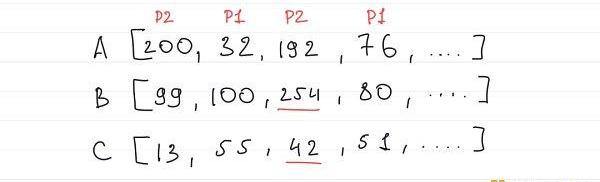 P2 P1 P2 P1
A [200, 32, 192, 76, ....]
B [99, 100, 254, 80, ....]
C [13, 55, 42, 51, ....]